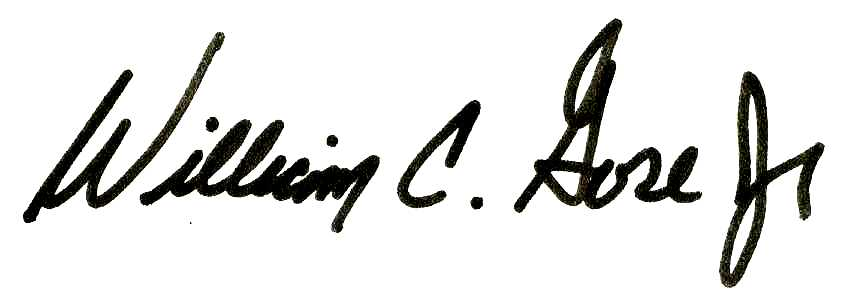 William C. Gose Jr